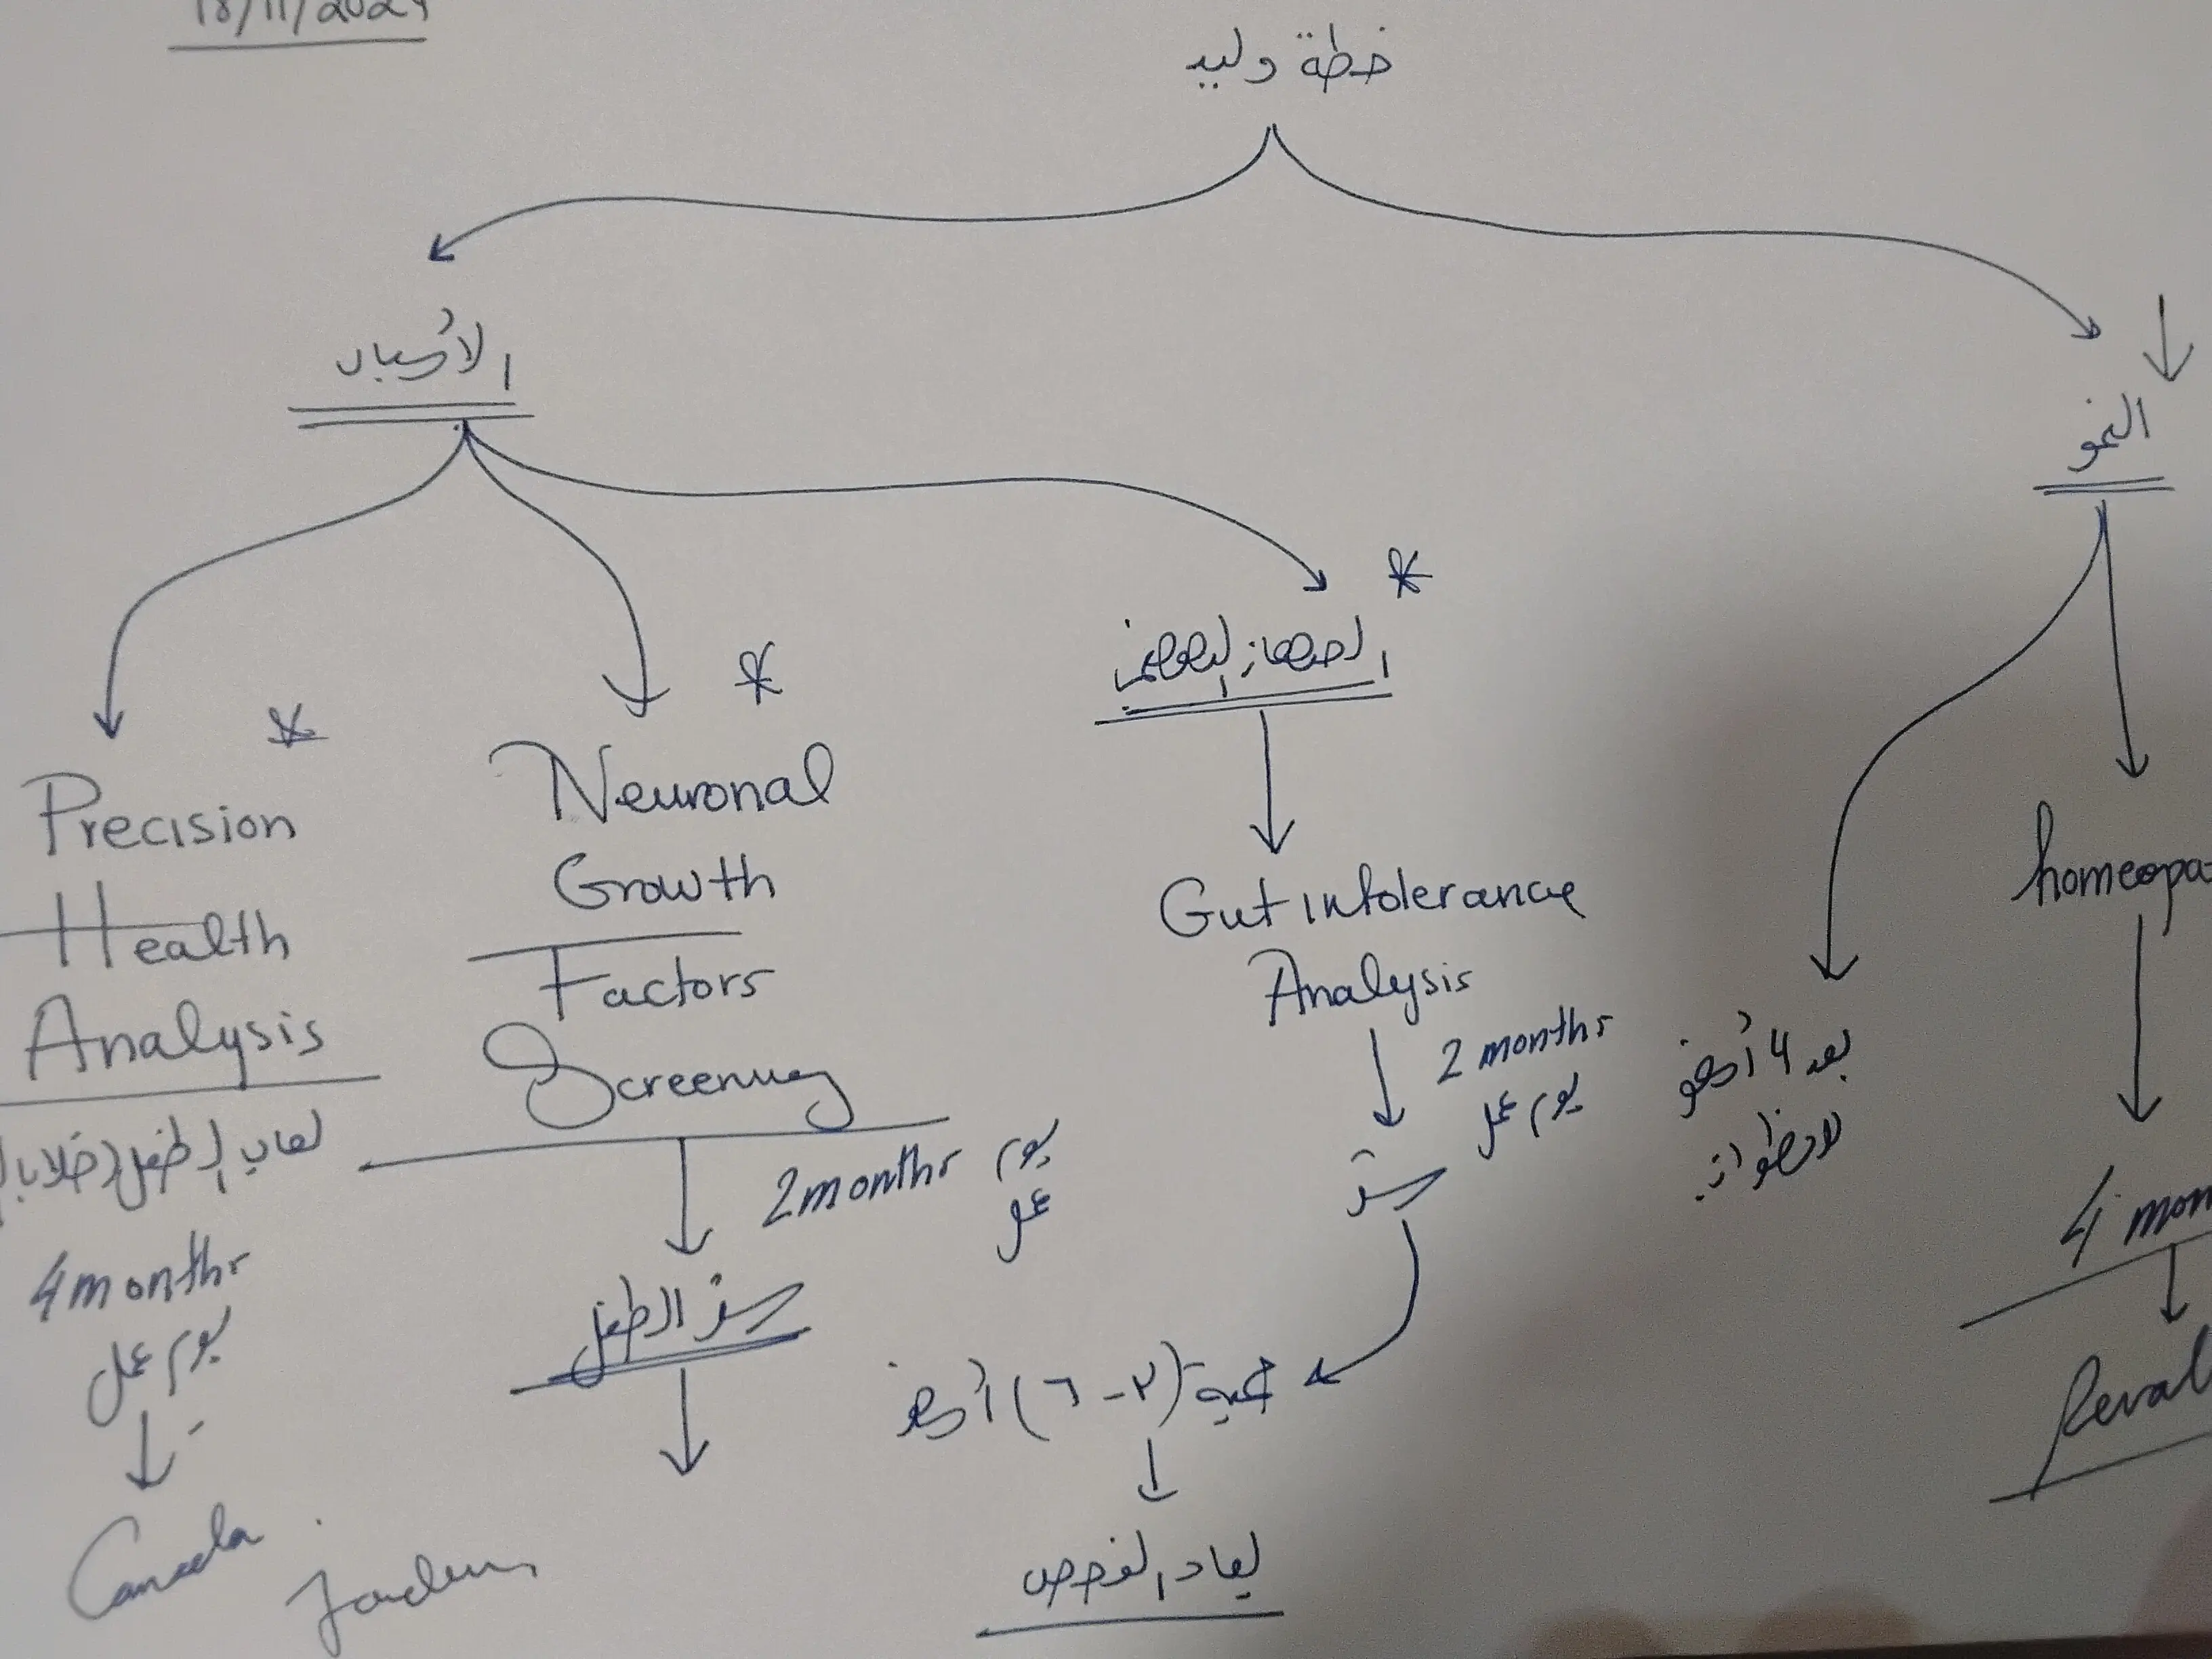 18/11/2024
خطة وليد
الأسباب
النمو
Precision
Health
Analysis
لعاب الطفل
4 months
يوم عمل
Canada
Jordan
Neuronal
Growth
Factors
Screening
2 months يوم
عمل
شعر الطفل
الجهاز الهضمي
Gut intolerance
Analysis
2 months
يوم عمل
شعر
حمية (٣-٦) أشهر
يعاد الفحص
بعد 4 أشهر
homeopa
4 mon
Reval